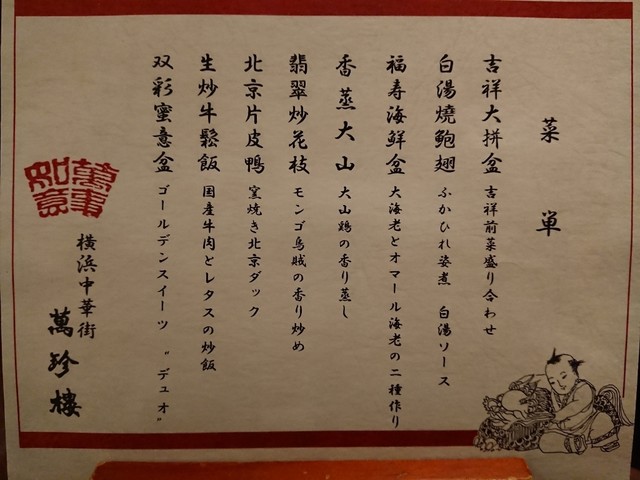 菜単
吉祥大拼盆 吉祥前菜盛り合わせ
白湯燒鮑翅 ふかひれ姿煮 白湯ソース
福寿海鮮盆 大海老とオマール海老の二種作り
香蒸大山 大山鶏の香り蒸し
翡翠炒花枝 モンゴ烏賊の香り炒め
北京片皮鴨 窯焼き北京ダック
生炒牛鬆飯 国産牛肉とレタスの炒飯
双彩蜜意盆 ゴールデンスイーツ “デュオ”
萬事如意
横浜中華街
萬珍樓